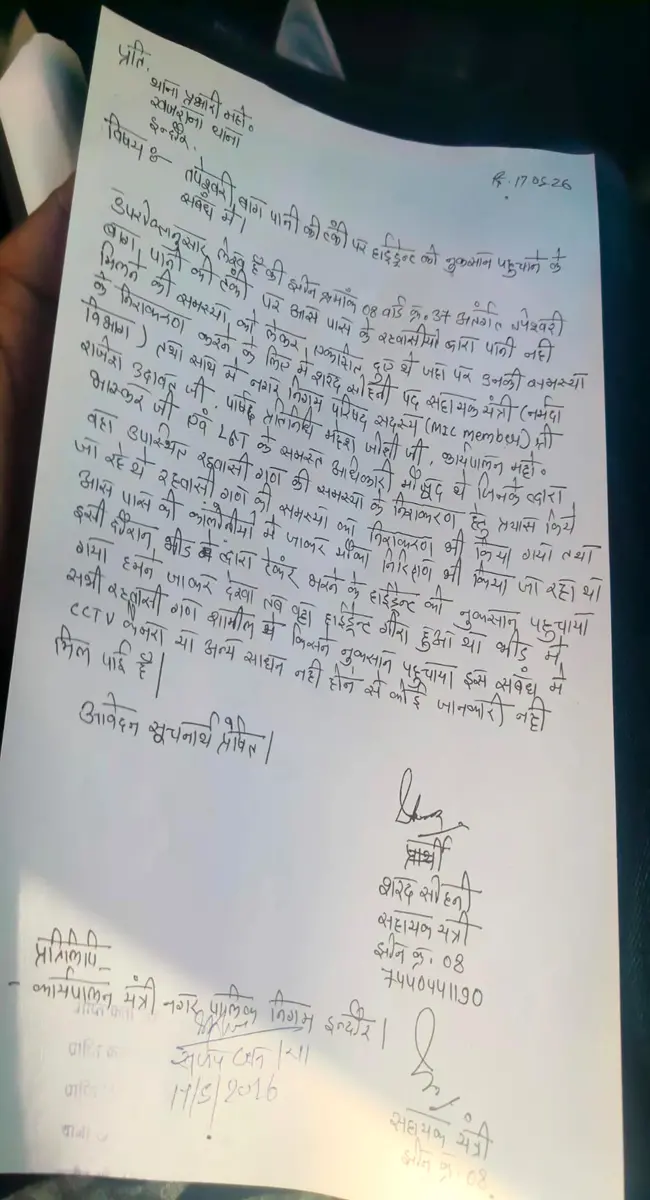 प्रति,
थाना प्रभारी महो०
खजराना थाना
इन्दौर.
दि. 17.05.26
विषय:- तपेश्वरी बाग पानी की टंकी पर हाईड्रेन्ट को नुकसान पहुचाने के
संबंध में।
उपरोक्तानुसार लेख है की झोन क्रमांक 08 वार्ड क्र. 37 अंर्तगत तपेश्वरी
बाग, पानी की टंकी पर आस पास के रहवासीयो द्वारा पानी नही
मिलने की समस्या को लेकर एकत्रित हुए थे जहा पर उनकी समस्या
के निराकरण करने के लिए मे शरद सोहनी पद सहायक यंत्री (नर्मदा
विभाग) तथा साथ मे नगर निगम परिषद सदस्य (MIC member) श्री
राजेश उदावत जी, पार्षद प्रतिनिधि महेश जोशी जी, कार्यपालन महो०
भास्कर जी एवं L&T के समस्त अधिकारी मौजूद थे जिनके द्वारा
वहा उपस्थित रहवासी गण की समस्या के निराकरण हेतु प्रयास किये
जा रहे थे रहवासी गण की समस्या का निराकरण भी किया गया तथा
आस पास की कालोनीयो मे जाकर मौका निरिक्षण भी किया जा रहा था
इसी दौरान भीड के द्वारा टेंकर भरने के हाईड्रेन्ट को नुकसान पहुचाया
गया हमने जाकर देखा तब वहा हाईड्रेन्ट गीरा हुआ था भीड़ मे
सभी रहवासी गण शामील थे किसने नुकसान पहुचाया इस संबंध मे
CCTV कैमरा या अन्य साधन नही होने से कोई जानकारी नही
मिल पाई है।
आवेदन सूचनार्थ प्रेषित।
प्रार्थी
शरद सोहनी
सहायक यंत्री
झोन क्र. 08
7440441190
प्रतिलिपि-
- कार्यपालन यंत्री नगर पालिक निगम इन्दौर।
17/5/2026
सहायक यंत्री
झोन क्र. 08